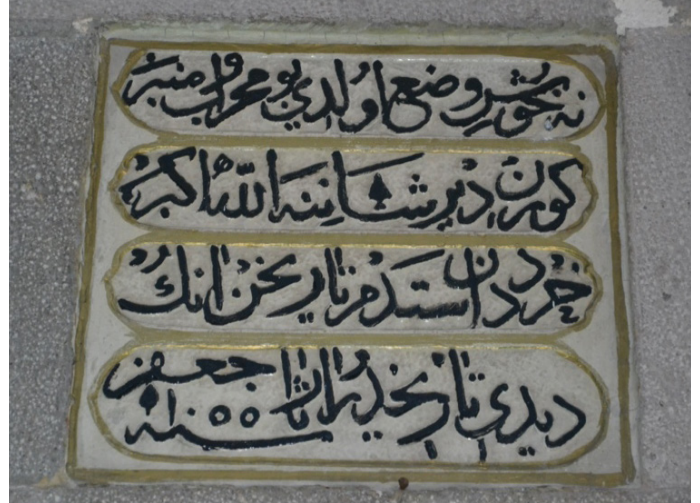 نه خوش وضع اولدي بو محراب و منبر
كورن دير شاننه الله اكبر
خرددن استدم تاريخن انك
ديدي تاريخدر اثار جعفر
سنه ١٠٥٥